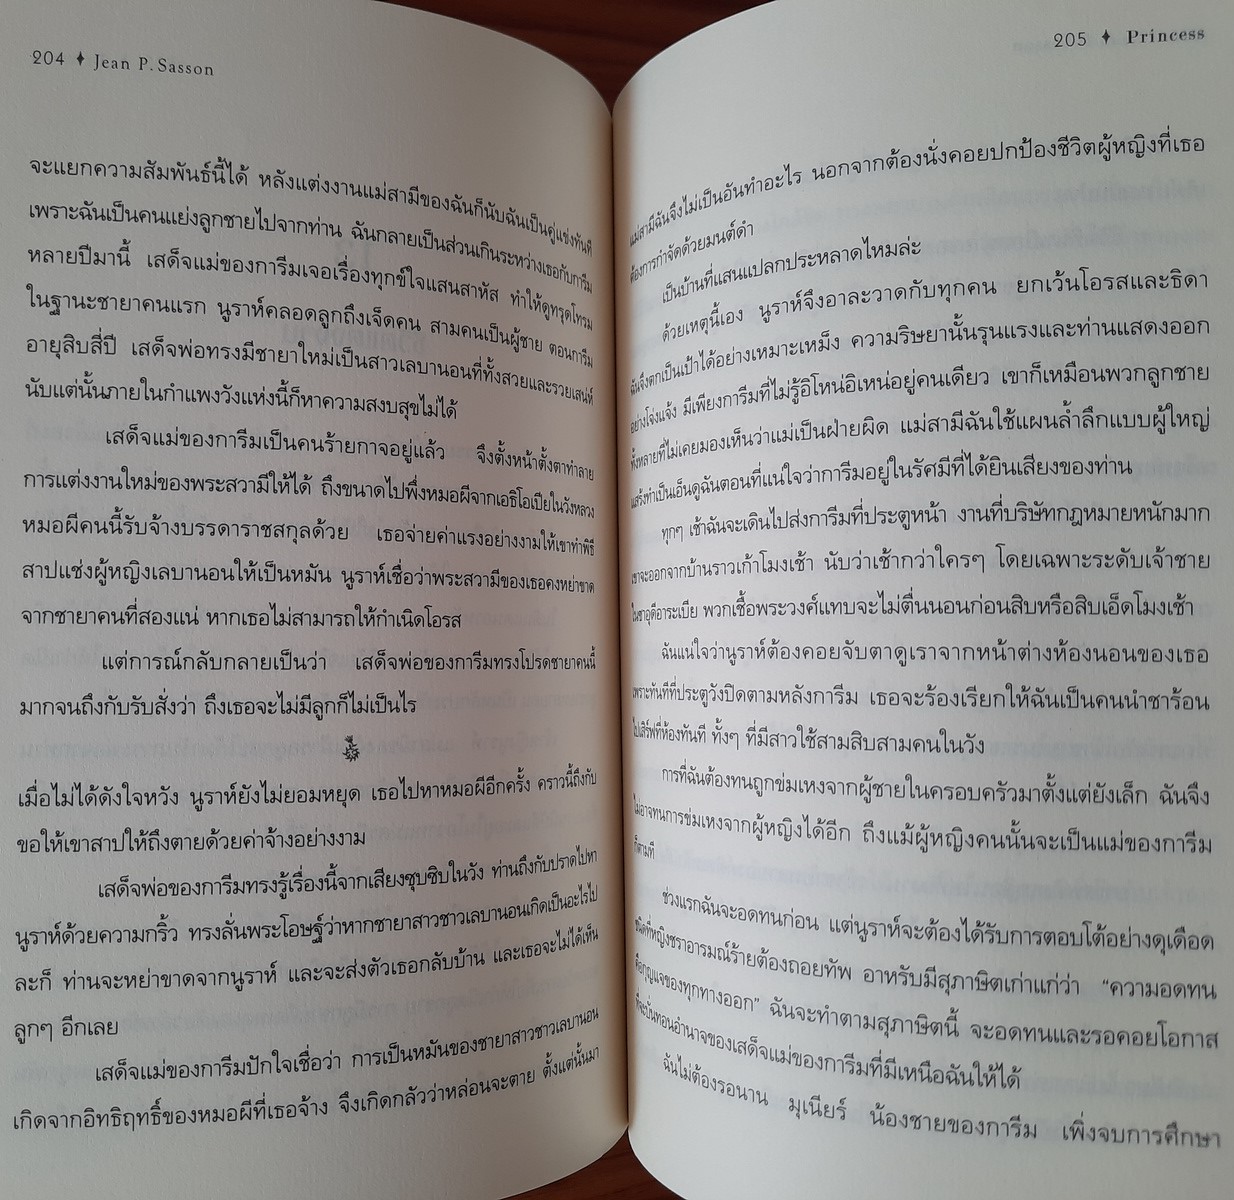 204 ✦ Jean P. Sasson
จะแยกความสัมพันธ์นี้ได้ หลังแต่งงานแม่สามีของฉันก็นับฉันเป็นคู่แข่งทันที
เพราะฉันเป็นคนแย่งลูกชายไปจากท่าน ฉันกลายเป็นส่วนเกินระหว่างเธอกับการีม
หลายปีมานี้ เสด็จแม่ของการีมเจอเรื่องทุกข์ใจแสนสาหัส ทำให้ดูทรุดโทรม
ในฐานะชายาคนแรก นูราห์คลอดลูกถึงเจ็ดคน สามคนเป็นผู้ชาย ตอนการีม
อายุสิบสี่ปี เสด็จพ่อทรงมีชายาใหม่เป็นสาวเลบานอนที่ทั้งสวยและรวยเสน่ห์
นับแต่นั้นภายในกำแพงวังแห่งนี้ก็หาความสงบสุขไม่ได้
เสด็จแม่ของการีมเป็นคนร้ายกาจอยู่แล้ว จึงตั้งหน้าตั้งตาทำลาย
การแต่งงานใหม่ของพระสวามีให้ได้ ถึงขนาดไปพึ่งหมอผีจากเอธิโอเปียในวังหลวง
หมอผีคนนี้รับจ้างบรรดาราชสกุลด้วย เธอจ่ายค่าแรงอย่างงามให้เขาทำพิธี
สาปแช่งผู้หญิงเลบานอนให้เป็นหมัน นูราห์เชื่อว่าพระสวามีของเธอคงหย่าขาด
จากชายาคนที่สองแน่ หากเธอไม่สามารถให้กำเนิดโอรส
แต่การณ์กลับกลายเป็นว่า เสด็จพ่อของการีมทรงโปรดชายาคนนี้
มากจนถึงกับรับสั่งว่า ถึงเธอจะไม่มีลูกก็ไม่เป็นไร
เมื่อไม่ได้ดังใจหวัง นูราห์ยังไม่ยอมหยุด เธอไปหาหมอผีอีกครั้ง คราวนี้ถึงกับ
ขอให้เขาสาปให้ถึงตายด้วยค่าจ้างอย่างงาม
เสด็จพ่อของการีมทรงรู้เรื่องนี้จากเสียงซุบซิบในวัง ท่านถึงกับปราดไปหา
นูราห์ด้วยความกริ้ว ทรงลั่นพระโอษฐ์ว่าหากชายาสาวชาวเลบานอนเกิดเป็นอะไรไป
ละก็ ท่านจะหย่าขาดจากนูราห์ และจะส่งตัวเธอกลับบ้าน และเธอจะไม่ได้เห็น
ลูกๆ อีกเลย
เสด็จแม่ของการีมปักใจเชื่อว่า การเป็นหมันของชายาสาวชาวเลบานอน
เกิดจากอิทธิฤทธิ์ของหมอผีที่เธอจ้าง จึงเกิดกลัวว่าหล่อนจะตาย ตั้งแต่นั้นมา
205 ✦ Princess
แม่สามีฉันจึงไม่เป็นอันทำอะไร นอกจากต้องนั่งคอยปกป้องชีวิตผู้หญิงที่เธอ
ต้องการกำจัดด้วยมนต์ดำ
เป็นบ้านที่แสนแปลกประหลาดไหมล่ะ
ด้วยเหตุนี้เอง นูราห์จึงอาละวาดกับทุกคน ยกเว้นโอรสและธิดา
ฉันจึงตกเป็นเป้าได้อย่างเหมาะเหม็ง ความริษยานั้นรุนแรงและท่านแสดงออก
อย่างโจ่งแจ้ง มีเพียงการีมที่ไม่รู้อิโหน่อิเหน่อยู่คนเดียว เขาก็เหมือนพวกลูกชาย
ทั้งหลายที่ไม่เคยมองเห็นว่าแม่เป็นฝ่ายผิด แม่สามีฉันใช้แผนล้ำลึกแบบผู้ใหญ่
แสร้งทำเป็นเอ็นดูฉันตอนที่แน่ใจว่าการีมอยู่ในรัศมีที่ได้ยินเสียงของท่าน
ทุกๆ เช้าฉันจะเดินไปส่งการีมที่ประตูหน้า งานที่บริษัทกฎหมายหนักมาก
เขาจะออกจากบ้านราวเก้าโมงเช้า นับว่าเช้ากว่าใครๆ โดยเฉพาะระดับเจ้าชาย
ในซาอุดีอาระเบีย พวกเชื้อพระวงศ์แทบจะไม่ตื่นนอนก่อนสิบหรือสิบเอ็ดโมงเช้า
ฉันแน่ใจว่านูราห์ต้องคอยจับตาดูเราจากหน้าต่างห้องนอนของเธอ
เพราะทันทีที่ประตูวังปิดตามหลังการีม เธอจะร้องเรียกให้ฉันเป็นคนนำชาร้อน
ไปเสิร์ฟที่ห้องทันที ทั้งๆ ที่มีสาวใช้สามสิบสามคนในวัง
การที่ฉันต้องทนถูกข่มเหงจากผู้ชายในครอบครัวมาตั้งแต่ยังเล็ก ฉันจึง
ไม่อาจทนการข่มเหงจากผู้หญิงได้อีก ถึงแม้ผู้หญิงคนนั้นจะเป็นแม่ของการีม
ก็ตามที
ช่วงแรกฉันจะอดทนก่อน แต่นูราห์จะต้องได้รับการตอบโต้อย่างดุเดือด
ชนิดที่หญิงชราอารมณ์ร้ายต้องถอยทัพ อาหรับมีสุภาษิตเก่าแก่ว่า “ความอดทน
คือกุญแจของทุกทางออก” ฉันจะทำตามสุภาษิตนี้ จะอดทนและรอคอยโอกาส
ที่จะบั่นทอนอำนาจของเสด็จแม่ของการีมที่มีเหนือฉันให้ได้
ฉันไม่ต้องรอนาน มุเนียร์ น้องชายของการีม เพิ่งจบการศึกษา